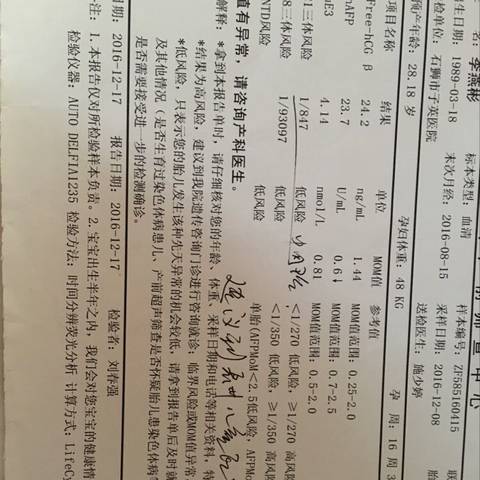 前 筛 查 中 心
名：李燕彬 标本类型：血清 样本编号：ZF585160415 联
生日期：1989-03-18 末次月经：2016-08-15 采样日期：2016-12-08 胎
检单位：石狮市子英医院 送检医生：施少婷
预产年龄：28.18 岁 孕妇体重：48 KG 孕 周：16 周 3
项目名称 结果 单位 MOM值 参考值
Free-hCG β 24.2 ng/mL 1.44 MOM值范围：0.25-2.0
AFP 23.7 U/mL 0.6↓ MOM值范围：0.7-2.5
E3 4.14 nmol/L 0.81 MOM值范围：0.5-2.0
1三体风险 1/847 低风险 <1/270 低风险，≥1/270 高风
8三体风险 1/93097 低风险 <1/350 低风险，≥1/350 高风
NTD风险 低风险 单胎（AFPMoM<2.5低风险，AFPMo
值有异常，请咨询产科医生。
建议到
解释：*拿到本报告单时，请仔细核对您的年龄、体重、采样日期和电话等相关资料，特
*结果为高风险，建议到我院遗传咨询门诊进行咨询就诊；临界风险或MOM值异常
*低风险，只表示您的胎儿发生该种先天异常的机会较低，请拿到报告单后及时就
及其他情况（是否生育过染色体病患儿、产前超声筛查是否怀疑胎儿患染色体病
是否需要接受进一步的检测确诊。
日期：2016-12-17 报告日期：2016-12-17 检验者：刘春强
注：1.本报告仅对所检验样本负责。2.宝宝出生半年之内，我们会对您宝宝的健康情
检验仪器：AUTO DELFIA1235 检验方法：时间分辨荧光分析 计算方式：LifeCy